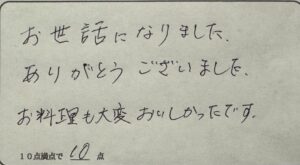 お世話になりました.
ありがとうございました.
お料理も大変おいしかったです.
10点満点で 10 点